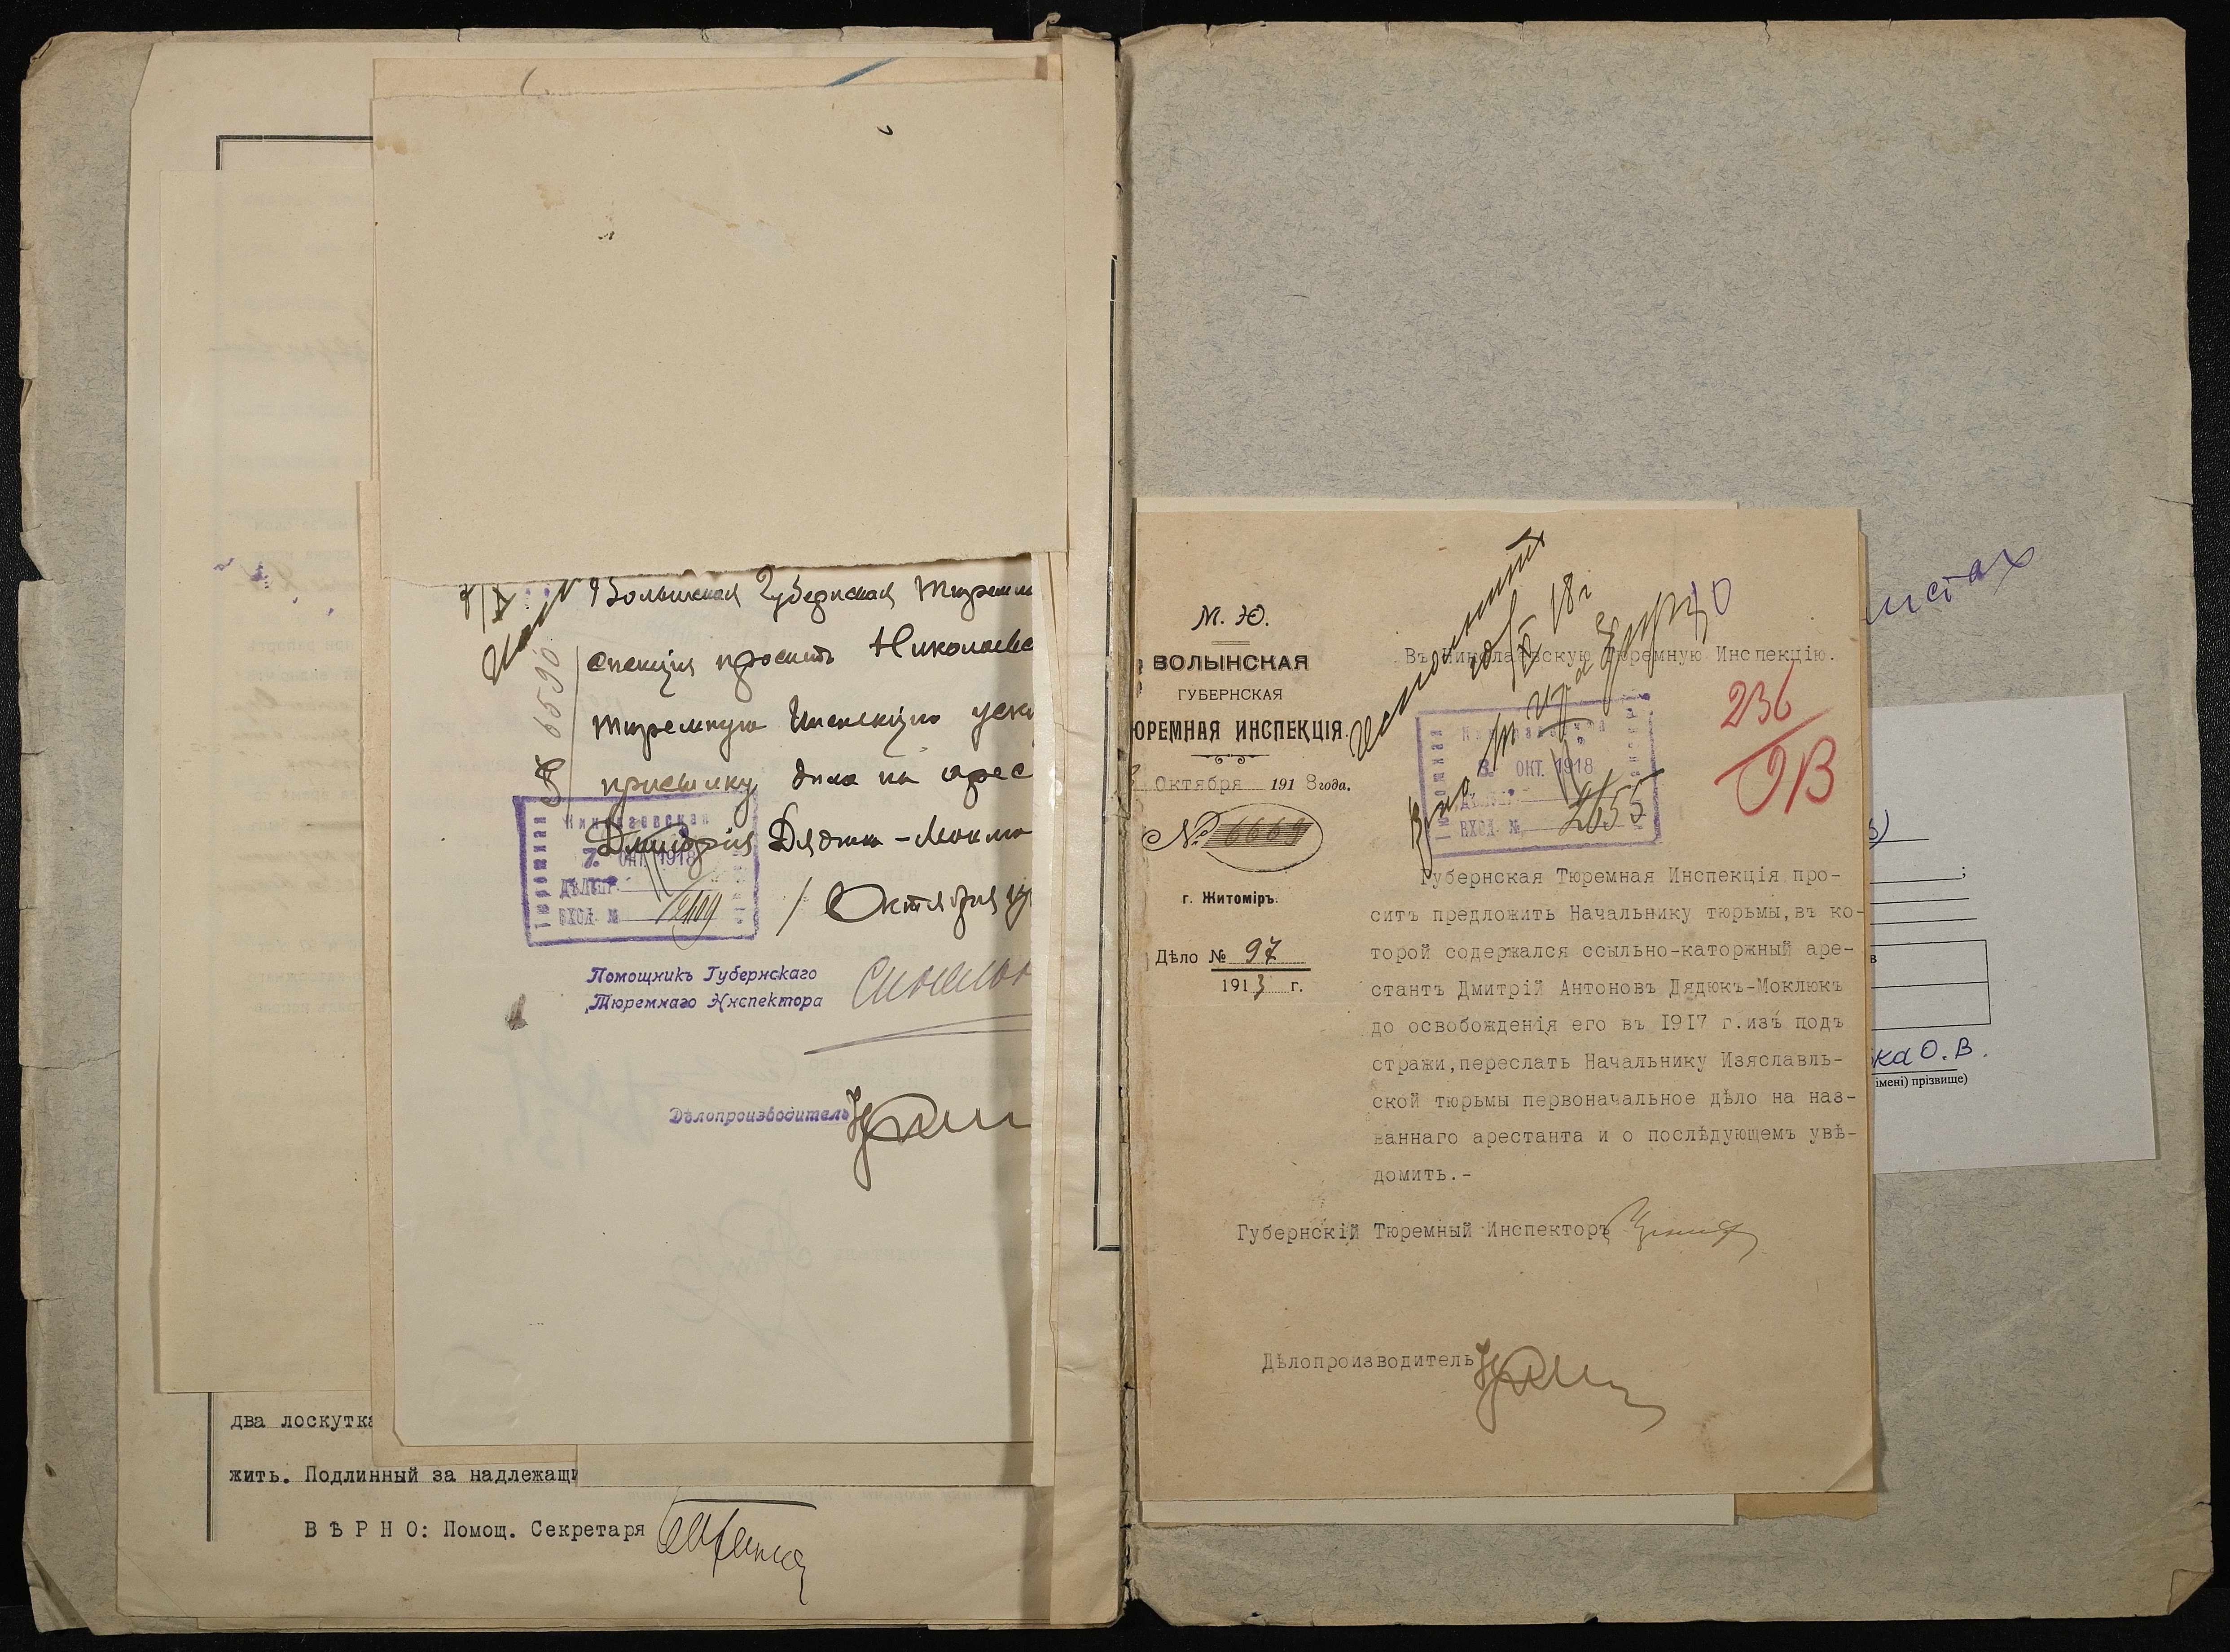 Волынская Губернская Тюремн
спекція проситъ Николаевс
тюремную Инспекцію уско
присылку дѣла на арес
Дмитрія Дядюка-Моклю
№ 6590
Николаевская
7. ОКТ. 1918
ДѢЛОПР.
ВХОД. №
/ Октября
Помощникъ Губернскаго
Тюремнаго Инспектора
Дѣлопроизводитель
два лоскутка
жить. Подлинный за надлежащи
ВѢРНО: Помощ. Секретаря
М. Ю.
ВОЛЫНСКАЯ
ГУБЕРНСКАЯ
ЮРЕМНАЯ ИНСПЕКЦІЯ.
Октября 1918 года.
№ 6669
г. Житоміръ.
Дѣло № 97
1913 г.
Исполнить
Въ Николаевскую Тюремную Инспекцію.
236
ОВ
Николаевская
8. ОКТ. 1918
ВХОД. № 2655
Губернская Тюремная Инспекція про-
ситъ предложить Начальнику тюрьмы, въ ко-
торой содержался ссыльно-каторжный аре-
стантъ Дмитрій Антоновъ Дядюкъ-Моклюкъ
до освобожденія его въ 1917 г. изъ подъ
стражи, переслать Начальнику Изяславль-
ской тюрьмы первоначальное дѣло на наз-
ваннаго арестанта и о послѣдующемъ увѣ-
домить.-
Губернскій Тюремный Инспекторъ
Дѣлопроизводитель
истах
ка О. В.
імені) прізвище)